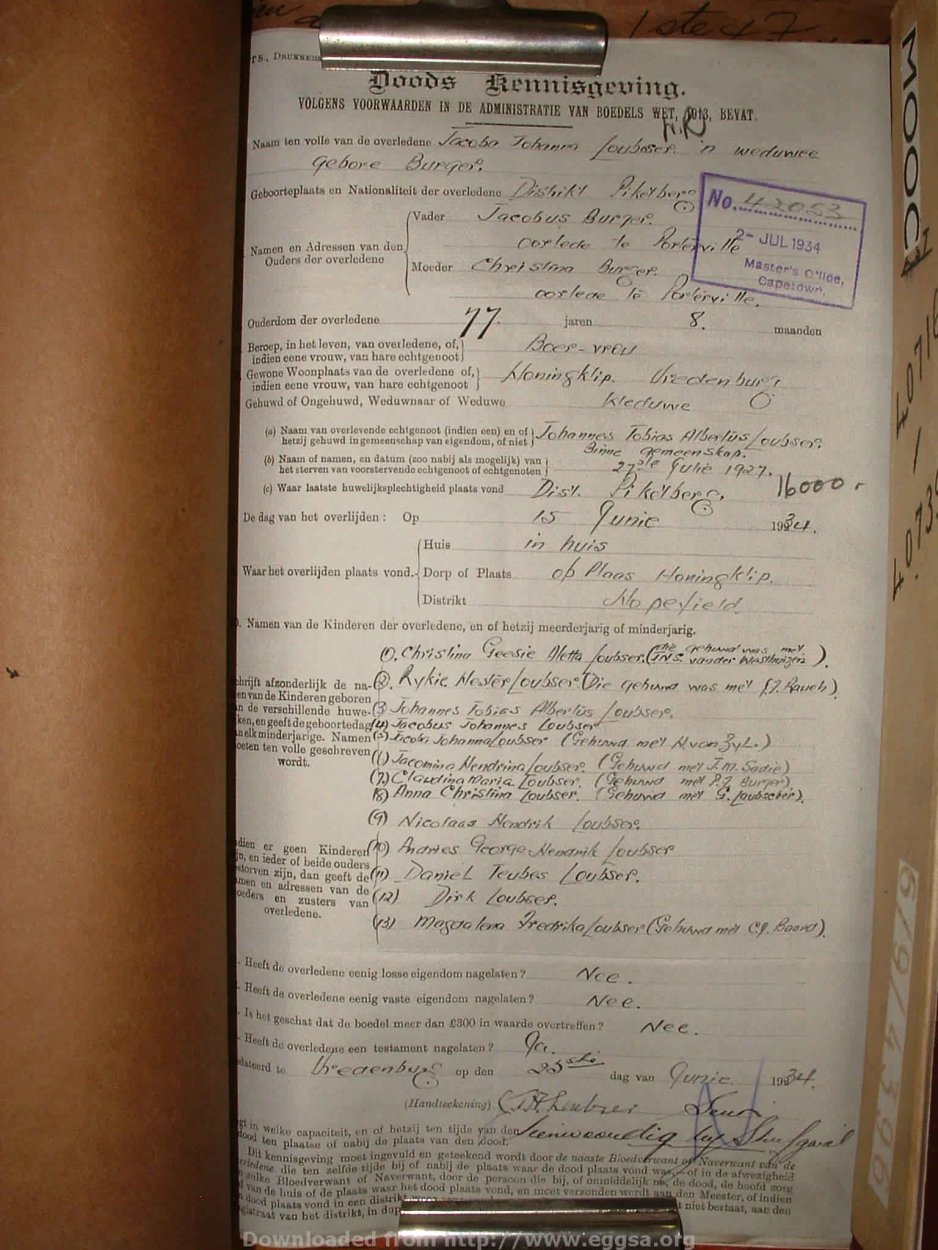 1ste 47
TS, DRUKKERS
Doods Kennisgeving.
VOLGENS VOORWAARDEN IN DE ADMINISTRATIE VAN BOEDELS WET, 1913, BEVAT.
Naam ten volle van de overledene Jacoba Johanna Loubser 'n weduwee
gebore Burger.
Geboorteplaats en Nationaliteit der overledene Distrikt Piketberg
No. 42053
2- JUL 1934
Master's Office,
Capetown.
Namen en Adressen van den Ouders der overledene
Vader Jacobus Burger.
oorlede te Porterville
Moeder Christina Burger.
oorlede te Porterville.
Ouderdom der overledene 77. jaren 8. maanden
Beroep, in het leven, van overledene, of, indien eene vrouw, van hare echtgenoot Boer-vrou
Gewone Woonplaats van de overledene of, indien eene vrouw, van hare echtgenoot Honingklip. Vredenburg
Gehuwd of Ongehuwd, Weduwnaar of Weduwe Weduwe
(a) Naam van overlevende echtgenoot (indien een) en of hetzij gehuwd in gemeenschap van eigendom, of niet Johannes Tobias Albertus Loubser.
Binne gemeenskap.
(b) Naam of namen, en datum (zoo nabij als mogelijk) van het sterven van voorstervende echtgenoot of echtgenoten 27ste Julie 1927.
(c) Waar laatste huwelijksplechtigheid plaats vond Dist. Piketberg.
16000
De dag van het overlijden: Op 15 Junie 1934.
Waar het overlijden plaats vond.
Huis in huis
Dorp of Plaats op Plaas Honingklip.
Distrikt Hopefield
Namen van de Kinderen der overledene, en of hetzij meerderjarig of minderjarig.
(1). Christina Geesie Aletta Loubser (die gehuwd was met J.N.S. van der Westhuizen).
(2). Rykie Hester Loubser (Die gehuwd was met J.J. Rauch)
(3) Johannes Tobias Albertus Loubser.
(4) Jacobus Johannes Loubser
(5) Jacoba Johanna Loubser (Gehuwd met H. von Zyl.)
(6) Jacomina Hendrina Loubser. (Gehuwd met J.M. Sadie)
(7) Claudina Maria Loubser. (Gehuwd met P.J. Burger)
(8) Anna Christina Loubser. (Gehuwd met G. Laubscher).
(9) Nicolaas Hendrik Loubser.
(10) Andries George Hendrik Loubser
(11) Daniel Teubes Loubser.
(12) Dirk Loubser.
(13) Magdalena Fredrika Loubser (Gehuwd met C.J. Baard).
chrijft afzonderlijk de na-
en van de Kinderen geboren
n de verschillende huwe-
ken, en geeft de geboortedag
an elk minderjarige. Namen
oeten ten volle geschreven
wordt.
dien er geen Kinderen
jn, en ieder of beide ouders
storven zijn, dan geeft de
amen en adressen van de
oeders en zusters van
overledene.
Heeft de overledene eenig losse eigendom nagelaten? Nee.
Heeft de overledene eenig vaste eigendom nagelaten? Nee.
Is het geschat dat de boedel meer dan £300 in waarde overtreffen? Nee.
Heeft de overledene een testament nagelaten? Ja.
dateerd te Vredenburg op den 25ste dag van Junie 1934.
(Handteekening) Loubser Seun
gt in welke capaciteit, en of hetzij ten tijde van den
dood ten plaatse of nabij de plaats van den dood. Teenwoordig by Sterfgeval
Dit kennisgeving moet ingevuld en geteekend wordt door de naaste Bloedverwant of Naverwant van de
erledene, die ten zelfde tijde bij of nabij de plaats waar de dood plaats vond was, of in de afwezigheid
zulke Bloedverwant of Naverwant, door de persoon die bij, of onmiddelijk na, de dood, de hoofd zorg
van de huis of de plaats waar het dood plaats vond, en moet verzonden wordt aan den Meester, of indien
dood plaats vond in een distrikt niet bestaat, aan den
gistraat van het distrikt, in dup
MOOC
40716
40735
6/9/4396
Downloaded from http://www.eggsa.org